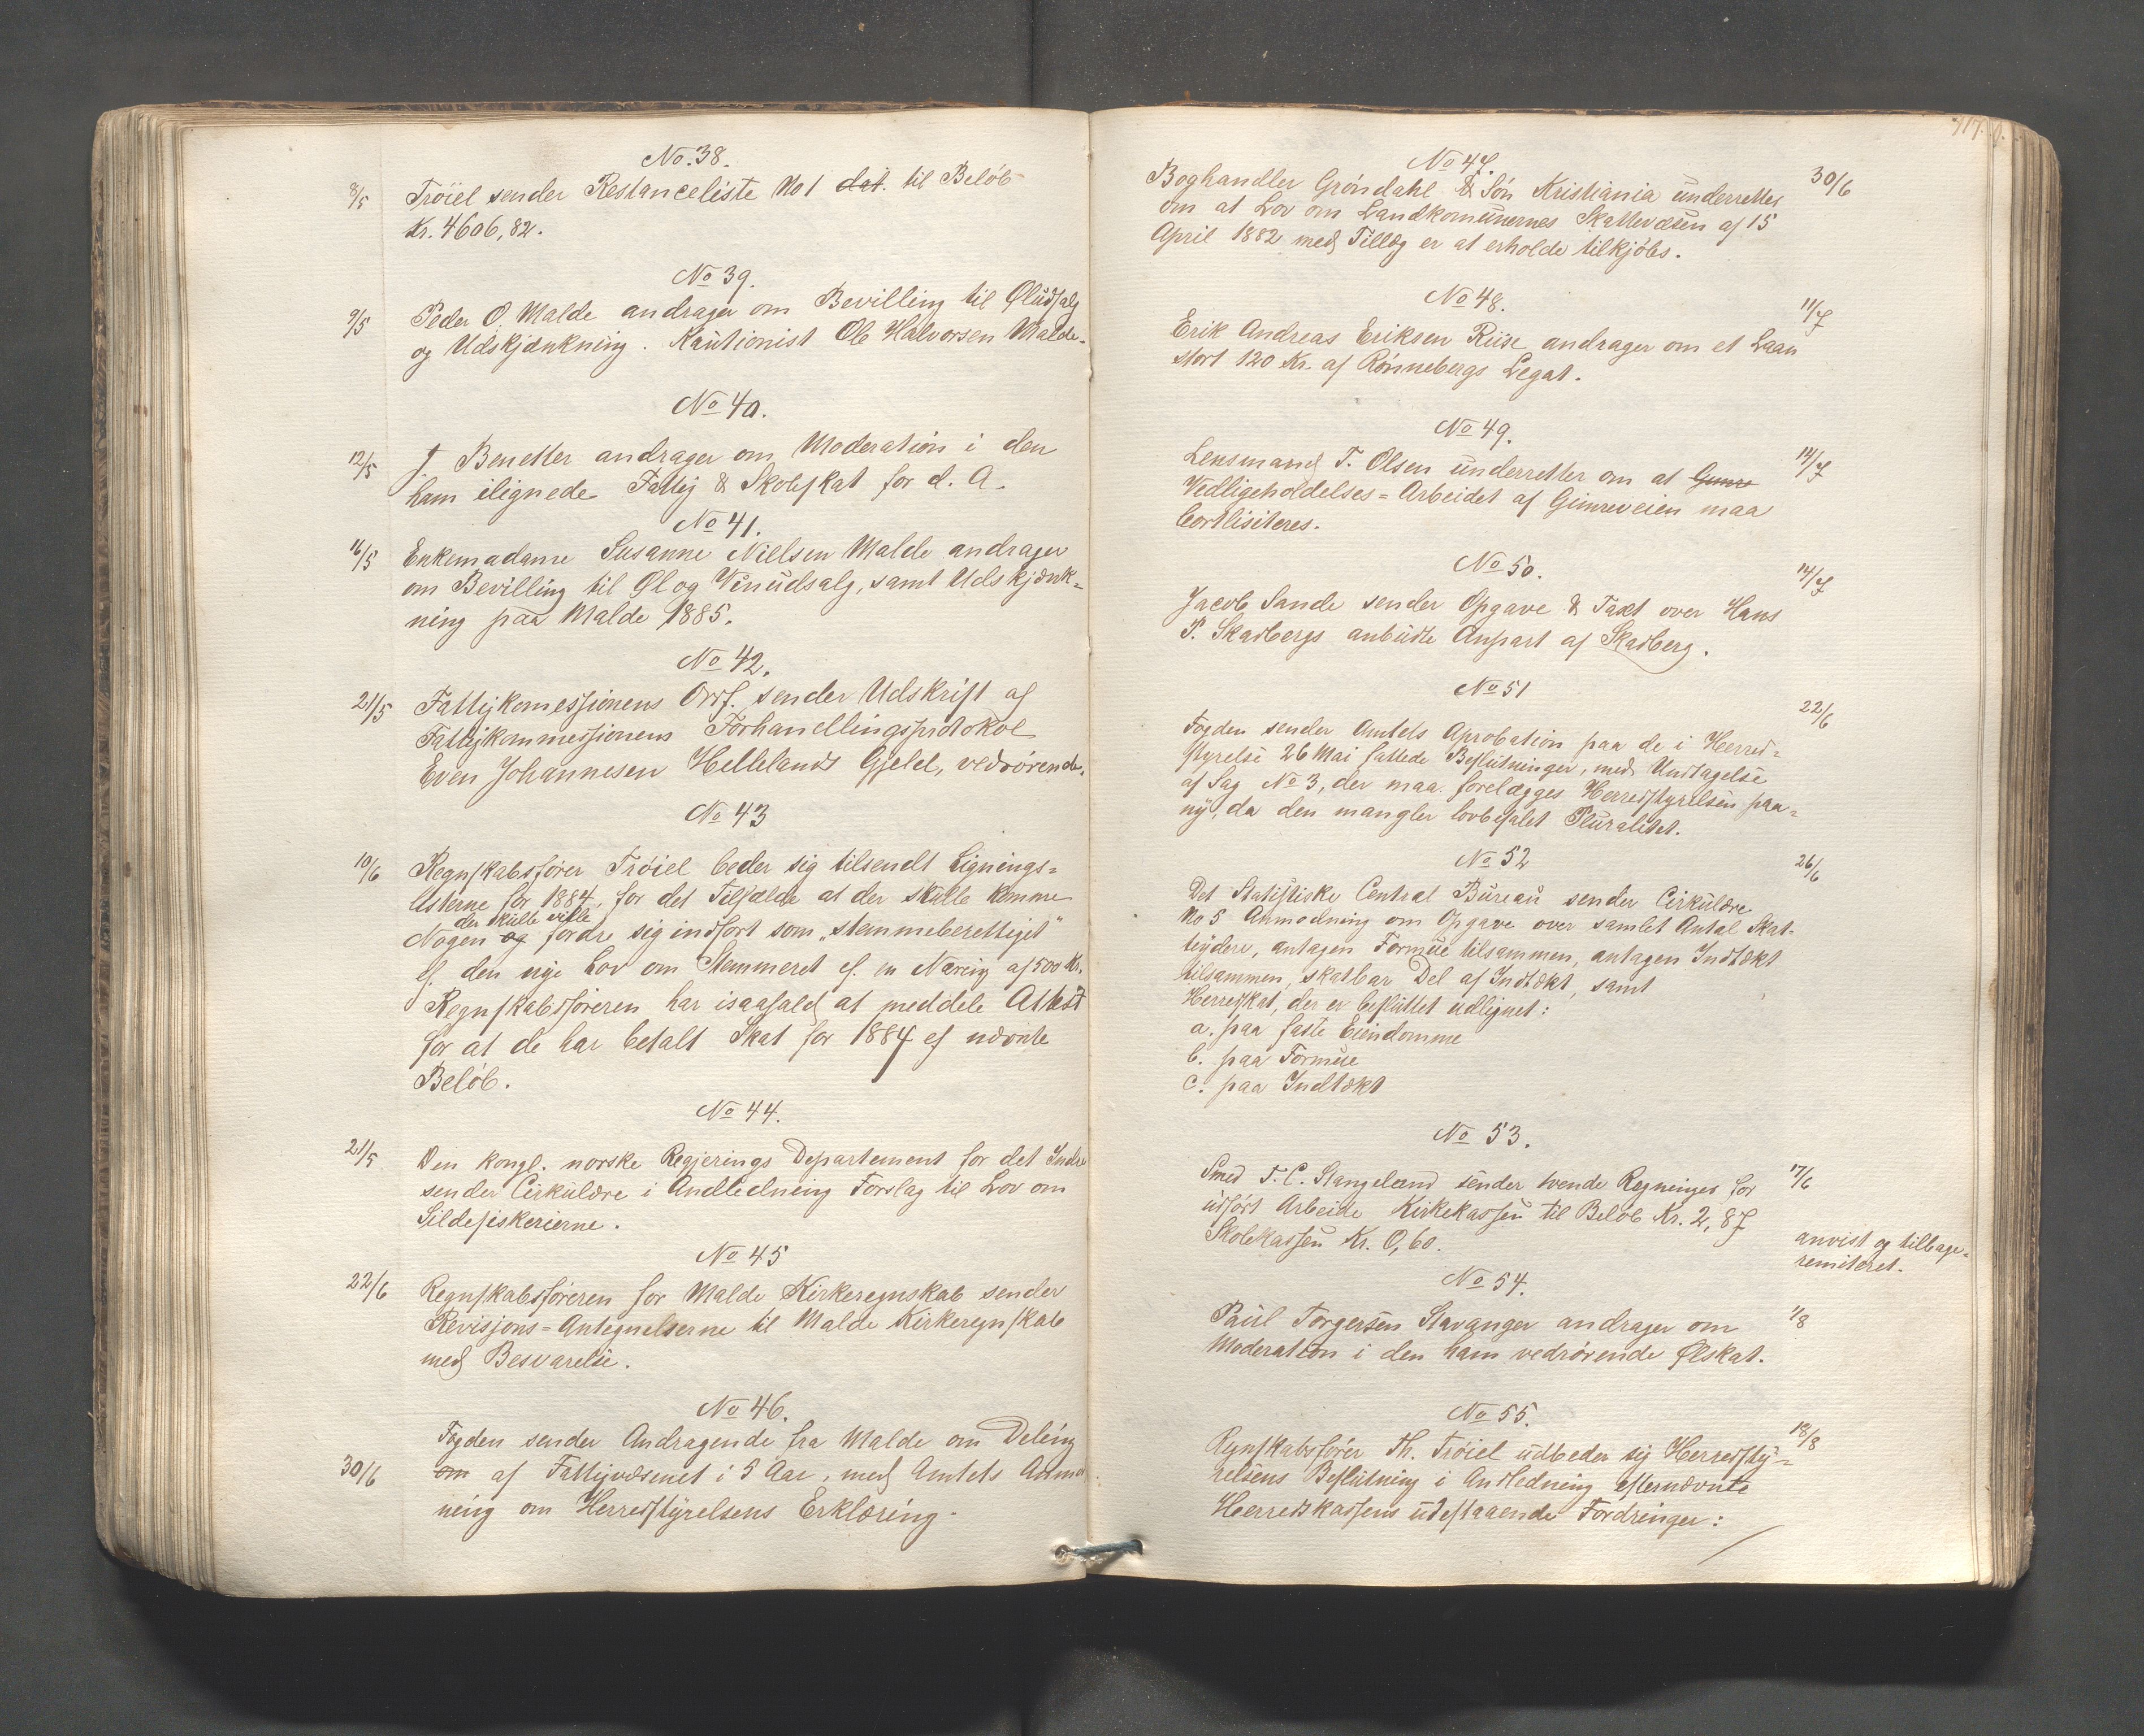 No. 38.
8/5 Tröiel sender Restanceliste No 1 dat. til Belöb
Kr. 4606,82.
No 39.
9/5 Peder O. Malde andrager om Bevilling til Øludsalg
og Udskjænkning. Kautionist Ole Halvorsen Malde.
No 40.
12/5 J. Benetter andrager om Moderation i den
ham ilignede Fattig & Skoleskat for d. A.
No 41.
16/5 Enkemadame Susanne Nielsen Malde andrager
om Bevilling til Øl og Vinudsalg, samt Udskjænk-
ning paa Malde 1885.
No 42.
21/5 Fattigkomessionens Orsf. sender Udskrift af
Fattigkommessionens Forhandlingsprotokol
Even Johannesen Hellelands Gjeld, vedrörende.
No 43
10/6 Regnskabsförer Tröiel beder sig tilsendt Lignings-
listerne for 1884, for det Tilfælde at der skulle komme
der skulle ville
Nogen og fordre sig indfört som "stemmeberettiget"
ef. den nye Lov om Stemmeret ef. en Næring af 500 Kr.
Regnskabsföreren har isaafald at meddele Attest
for at de har betalt Skat for 1884 ef nævnte
Belöb.
No 44.
21/5 Den kongl. norske Regjerings Departement for det Indre
sender Cirkulære i Andledning Forslag til Lov om
Sildefiskerierne.
No 45
22/6 Regnskabsföreren for Malde Kirkeregnskab sender
Revisjons-Antegnelserne til Malde Kirkeregnskab
med Besvarelse.
No 46.
Fogden sender Andragende fra Malde om Deling
30/6 om af Fattigvæsenet i 5 Aar, med Amtets Anmod
ning om Herredstyrelsens Erklæring.
No 47.
Boghandler Gröndahl & Sön Kristiania underretter 30/6
om at Lov om Landkomunernes Skattevæsen af 15
April 1882 med Tillæg er at erholde tilkjöbs.
No 48.
11/7
Erik Andreas Eriksen Riise andrager om et Laan
stort 120 Kr. af Rönnebergs Legat.
No 49.
Lensmand T. Olsen underretter om at Gimre 14/7
Vedligeholdelses-Arbeidet af Gimreveien maa
bortlisiteres.
No 50.
14/7
Jacob Sande sender Opgave & Taxt over Hans
P. Skadbergs anbudte Anpart af Skadberg.
No 51
22/6
Fogden sender Amtets Aprobation paa de i Herred-
styrelse 26 Mai fattede Beslutninger, med Undtagelse
af Sag No 3, der maa forelægges Herredstyrelsen paa-
ny, da den mangler lovbefalet Pluralitet.
No 52
26/6
Det Statistiske Central Bureau sender Cirkulære
No 5 Anmodning om Opgave over samlet Antal Skat-
teydere, antagen Formue tilsammen, antagen Indtækt
tilsammen, skatbar Del af Indtækt, samt
Herredskat, der er besluttet udlignet:
a. paa faste Eiendomme
b. paa Formue
c. paa Indtækt
No 53.
Smed T. C. Stangeland sender tvende Regninger for 17/6
udfört Arbeide Kirkekassen til Belöb Kr. 2,87
Skolekassen Kr. 0,60.
anvist og tilbage-
remiteret.
No 54.
Paul Torgersen Stavanger andrager om 1/8
Moderation i den ham vedrörende Ølskat.
No 55.
18/8
Regnskabsförer Th. Tröiel udbeder sig Herredsty-
relsens Beslutning i Andledning efternævnte
Herredskassens udestaaende Fordringer: